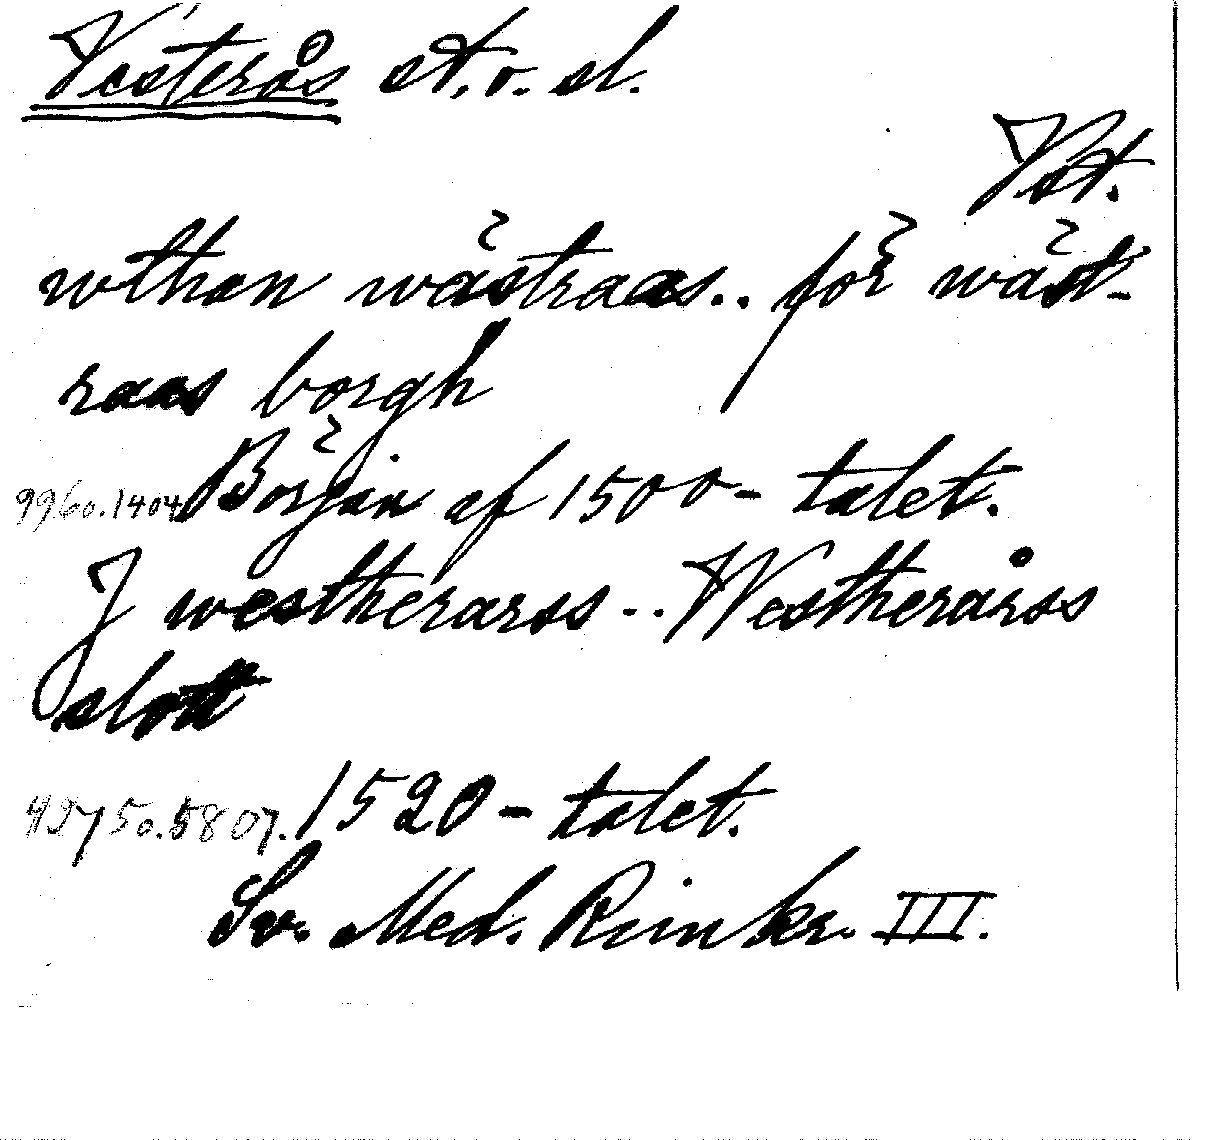 Vesterås st. o. sl.
Vst.
wthan wästraas.. för wäst-
raas borgh
9960.1404 Början af 1500-talet.
J westherarss -.. Westherårss
slott
42750.5807. 1520-talet.
Sv. Med. Rimkr. III.